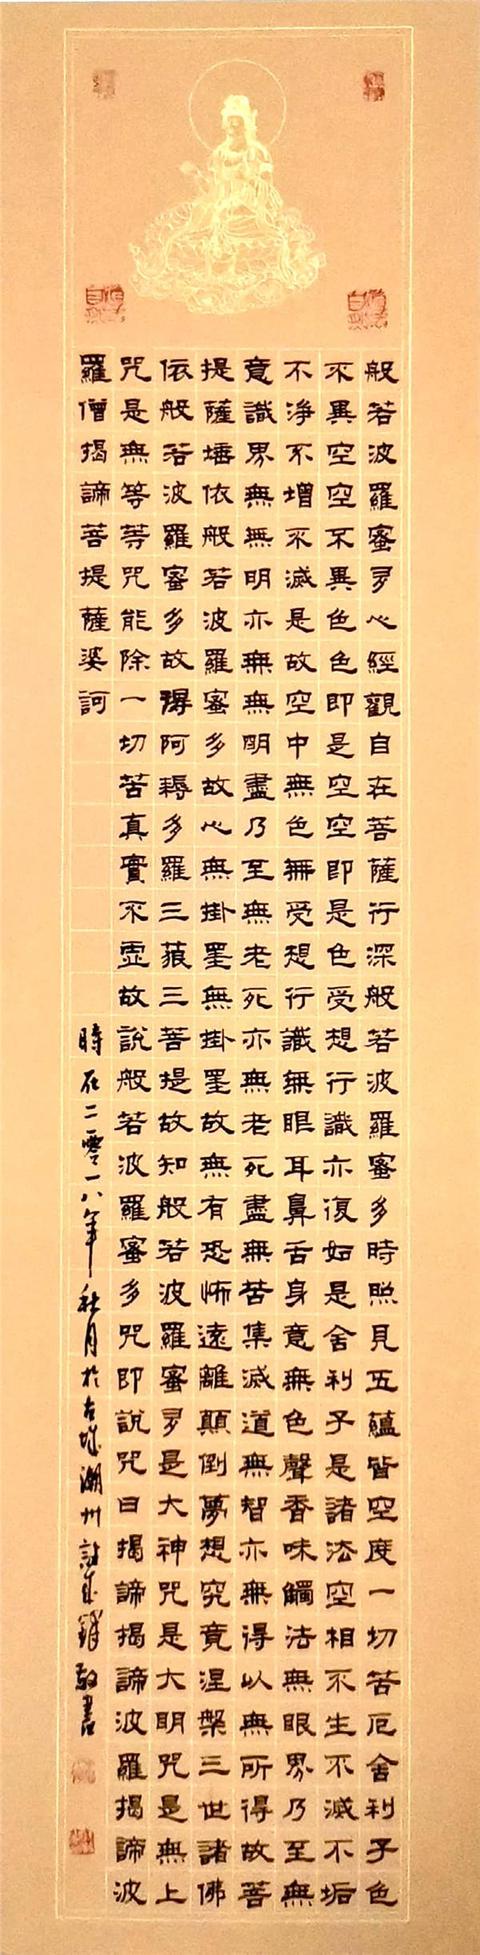 般若波羅蜜多心經觀自在菩薩行深般若波羅蜜多時照見五蘊皆空度一切苦厄舍利子色
不異空空不異色色即是空空即是色受想行識亦復如是舍利子是諸法空相不生不滅不垢
不淨不增不滅是故空中無色無受想行識無眼耳鼻舌身意無色聲香味觸法無眼界乃至無
意識界無無明亦無無明盡乃至無老死亦無老死盡無苦集滅道無智亦無得以無所得故菩
提薩埵依般若波羅蜜多故心無掛罣無掛罣故無有恐怖遠離顛倒夢想究竟涅槃三世諸佛
依般若波羅蜜多故得阿耨多羅三藐三菩提故知般若波羅蜜多是大神咒是大明咒是無上
咒是無等等咒能除一切苦真實不虛故說般若波羅蜜多咒即說咒曰揭諦揭諦波羅揭諦波
羅僧揭諦菩提薩婆訶
時在二零一八年秋月於古城潮州敬書